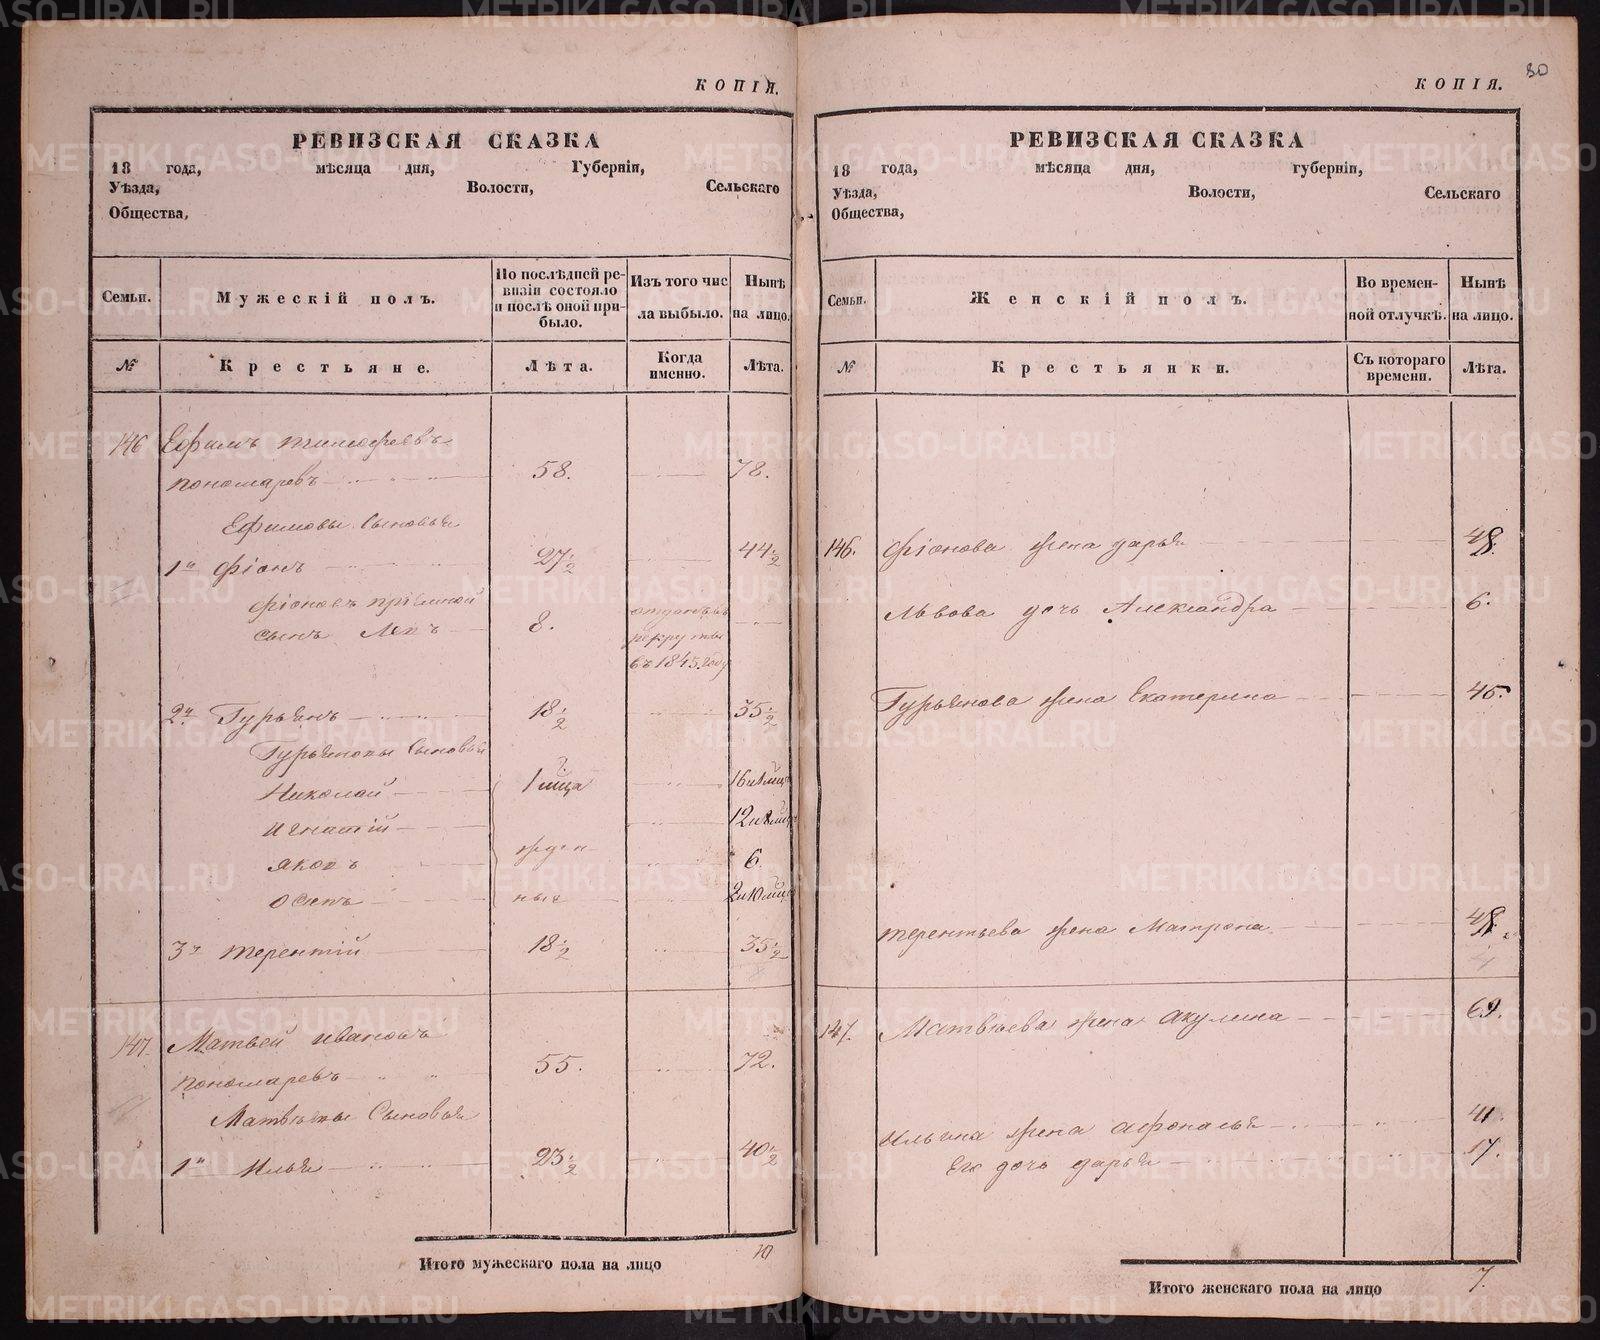 КОПІЯ.
РЕВИЗСКАЯ СКАЗКА
18 года, мѣсяца дня, Губерніи,
Уѣзда, Волости, Сельскаго
Общества,
Семьи. Мужескій полъ. По послѣдней ревизіи состояло и послѣ оной прибыло. Изъ того числа выбыло. Нынѣ на лицо.
№ Крестьяне. Лѣта. Когда именно. Лѣта.
146 Ефимъ тимофеевъ
пономаревъ 58. 78.
Ефимовы сыновья
1й фіонъ 27½ 44½
фіоновъ пріемной
сынъ Левъ 8. отданъ въ
рекруты
въ 1845. году
2й Гурьянъ 18½ 35½
Гурьяновы сыновья
Николай 1 м̃ца 16 и 1 м̃ца
игнатій 12
яковъ 6
осипъ 2 и 10 м̃ца
3й терентій 18½ 35½
147. Матвей ивановъ
пономаревъ 55. 72.
Матвѣевы Сыновья
1й Илья 23½ 40½
Итого мужескаго пола на лицо 10
80
КОПІЯ.
РЕВИЗСКАЯ СКАЗКА
18 года, мѣсяца дня, губерніи,
Уѣзда, Волости, Сельскаго
Общества,
Семьи. Женскій полъ. Во временной отлучкѣ. Нынѣ на лицо.
№ Крестьянки. Съ котораго времени. Лѣта.
146. фіонова жена дарья 48.
Львова дочь Александра 6.
Гурьянова жена Екатерина 45.
терентьева жена Матрона
147. Матвѣева жена акулина 69.
Ильина жена афонасья 41.
Его дочь дарья 17.
Итого женскаго пола на лицо 7.
METRIKI.GASO-URAL.RU